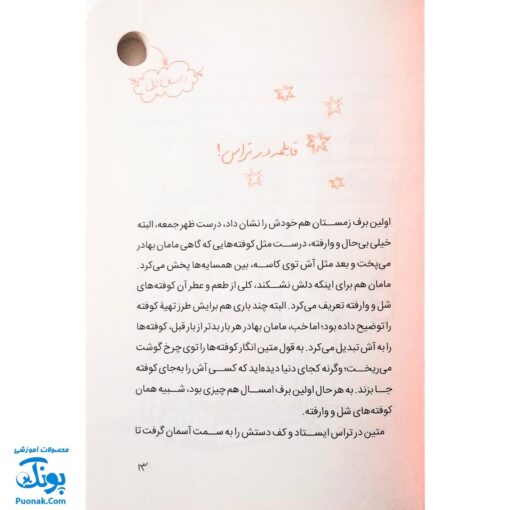 داستان اول
قابلمه در تراس!
اولین برف زمستان هم خودش را نشان داد، درست ظهر جمعه، البته
خیلی بی‌حال و وارفته، درست مثل کوفته‌هایی که گاهی مامان بهادر
می‌پخت و بعد مثل آش توی کاسه، بین همسایه‌ها پخش می‌کرد.
مامان هم برای اینکه دلش نشکند، کلی از طعم و عطر آن کوفته‌های
شل و وارفته تعریف می‌کرد. البته چند باری هم برایش طرز تهیهٔ کوفته
را توضیح داده بود؛ اما خب، مامان بهادر هر بار بدتر از بار قبل، کوفته‌ها
را به آش تبدیل می‌کرد. به قول متین انگار کوفته‌ها را توی چرخ گوشت
می‌ریخت؛ وگرنه کجای دنیا دیده‌اید که کسی آش را به‌جای کوفته
جا بزند. به هر حال اولین برف امسال هم چیزی بود، شبیه همان
کوفته‌های شل و وارفته.
متین در تراس ایستاد و کف دستش را به سمت آسمان گرفت تا
۱۳
محصولات آموزشی
پونک
Puonak.Com